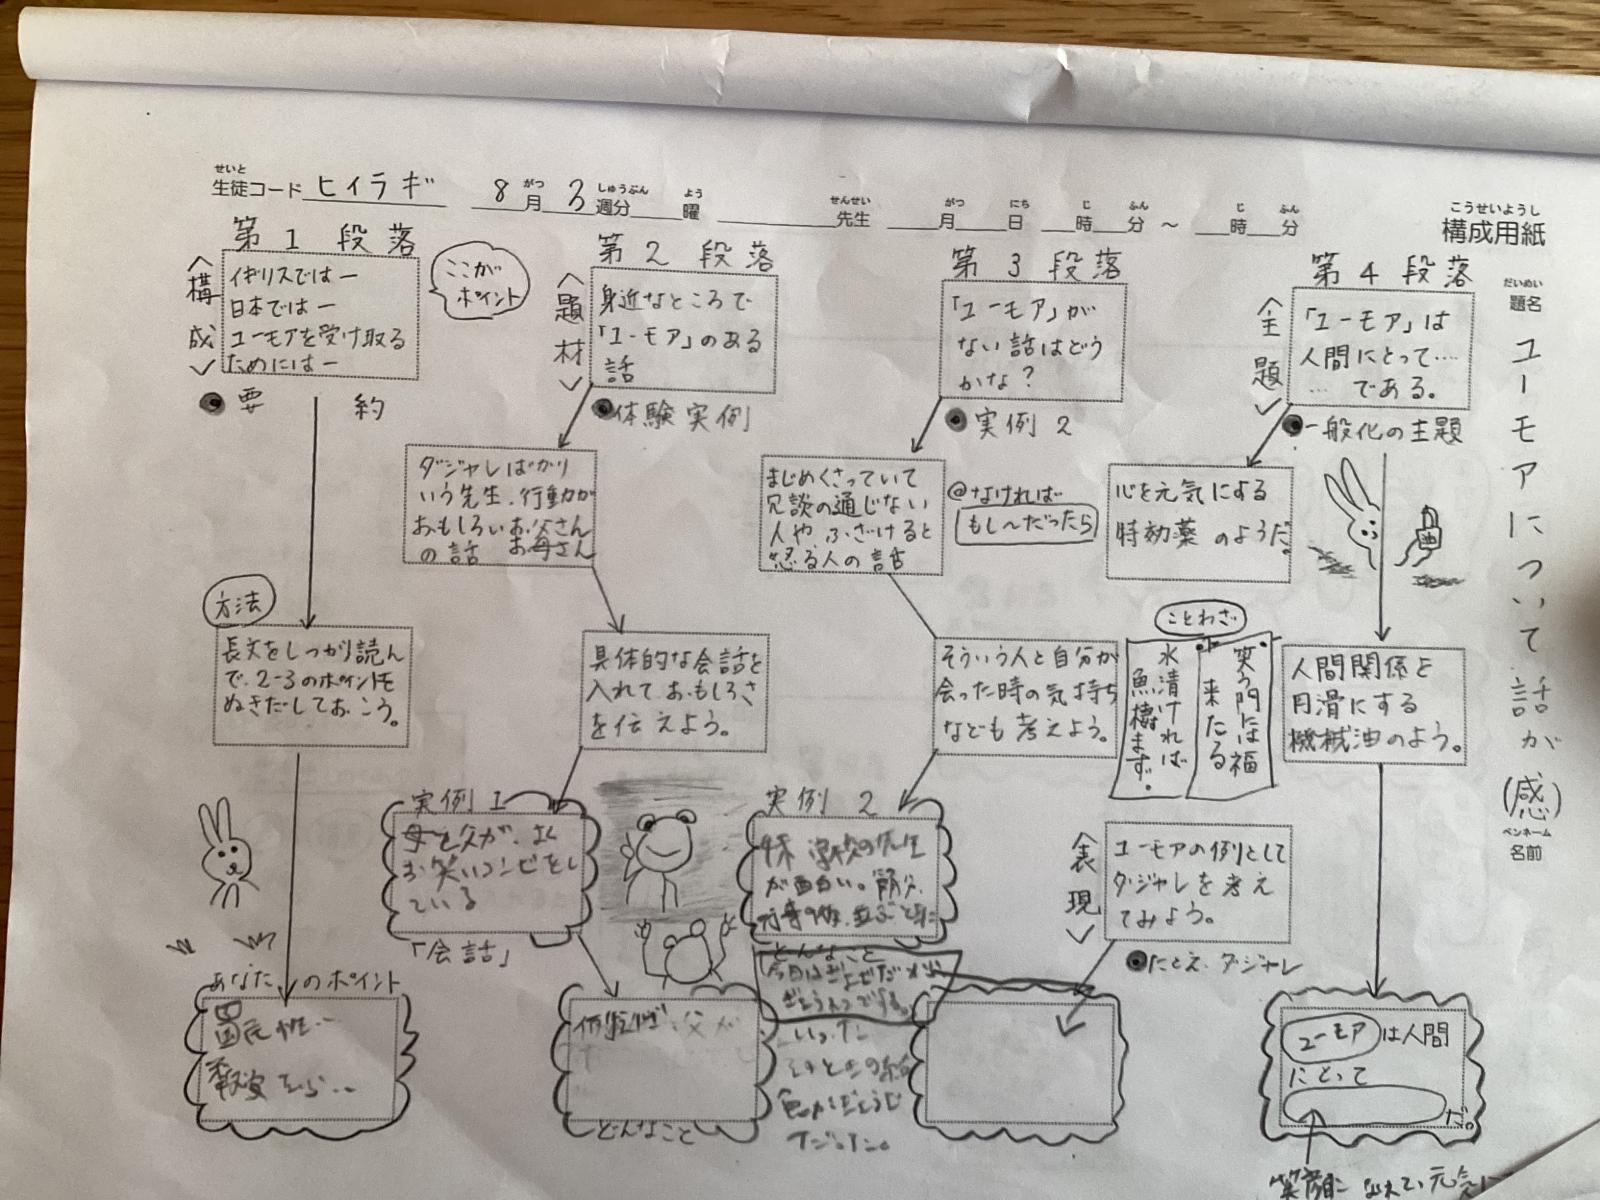 せいと
生徒コード ヒイラギ 8 がつ 月 3 しゅうぶん 週分 よう 曜 せんせい 先生 がつ 月 にち 日 じ 時 ふん 分 ～ じ 時 ふん 分
こうせいようし
構成用紙
だいめい
題名
ユーモアについて 話が
(感)
ペンネーム
名前
第1段落
〈構成〉
イギリスではー
日本ではー
ユーモアを受け取る
ためにはー
ここが
ポイント
●要約
方法
長文をしっかり読ん
で、2-3のポイントを
ぬきだしておこう。
あなたのポイント
国民性…
第2段落
〈題材〉
身近なところで
「ユーモア」のある
話
●体験実例
ダジャレばかり
いう先生、行動が
おもしろいお父さん
お母さん
の話
具体的な会話を
入れておもしろさ
を伝えよう。
実例1
母と父が、よく
お笑いコンビをし
ている
「会話」
父が
どんなこと
第3段落
「ユーモア」が
ない話はどう
かな？
●実例2
まじめくさっていて
冗談の通じない
人や、ふざけると
怒る人の話
@なければ
もし〜だったら
そういう人と自分が
会った時の気持ち
なども考えよう。
実例2
学校の先生
が面白い。
どんなこと
今日は
いった
第4段落
〈主題〉
「ユーモア」は
人間にとって……
……である。
●一般化の主題
心を元気にする
特効薬のようだ。
ことわざ
笑う門には福
来たる
水清ければ
魚棲まず。
人間関係を
円滑にする
機械油のよう。
油
〈表現〉
ユーモアの例として
ダジャレを考え
てみよう。
●たとえ・ダジャレ
ユーモアは人間
にとって
だ。
笑顔に なれて、元気に